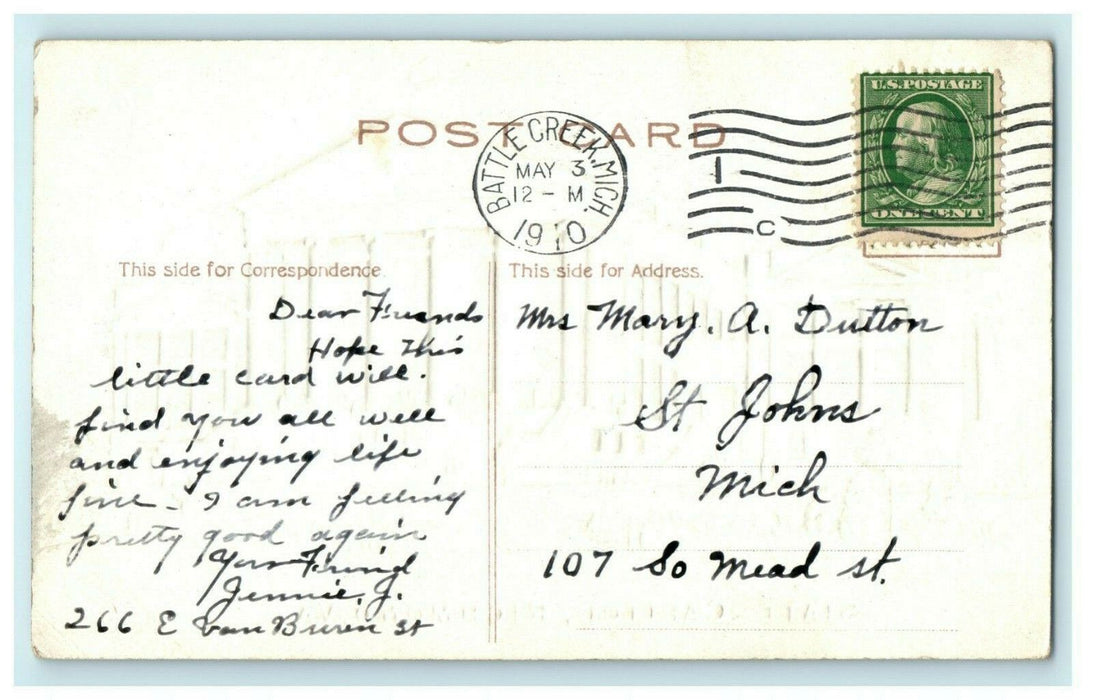 POST CARD
BATTLE CREEK, MICH.
MAY 3
12 - M
1910
1
C
U.S. POSTAGE
ONE CENT
This side for Correspondence.
This side for Address.
Dear Friends
Hope This
little card will.
find you all well
and enjoying life
fine - I am feeling
pretty good again
Your Friend
Jennie, J.
266 E Van Buren st
Mrs Mary. A. Dutton
St Johns
Mich
107 So Mead st.